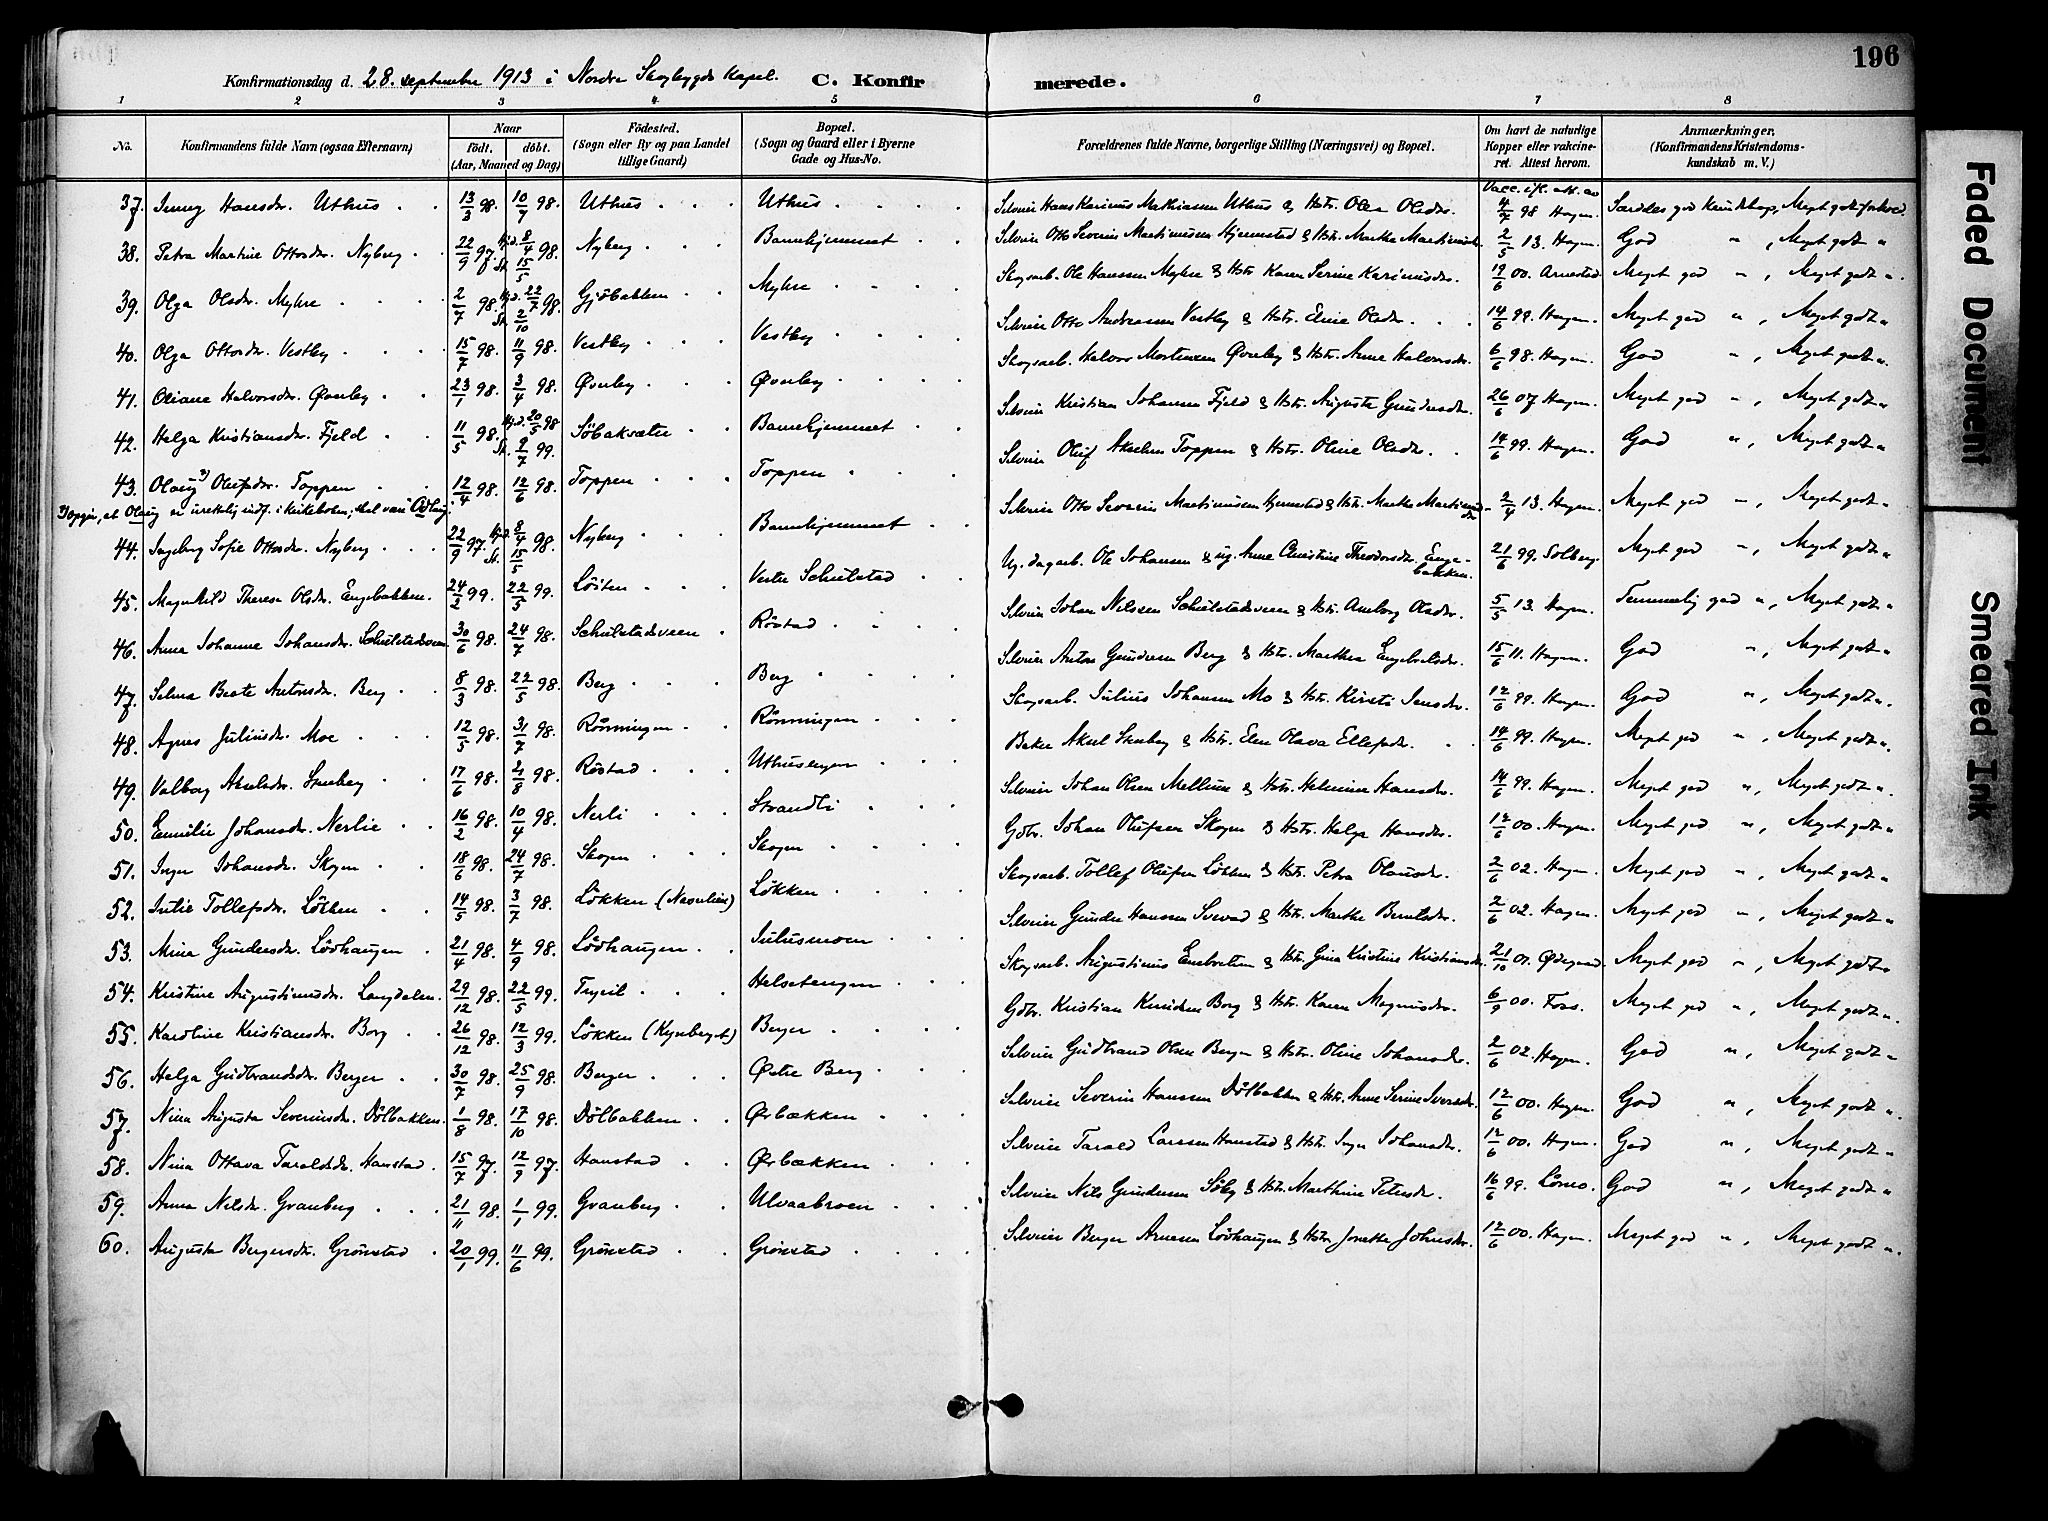 196
Konfirmationsdag d. 28. september 1913 i Nordre Skogbygds Kapel. C. Konfirmerede.
1 2 3 4 5 6 7 8
No. Konfirmandens fulde Navn (ogsaa Efternavn) Naar födt. döbt. (Aar, Maaned og Dag) Födested. (Sogn eller By og paa Landet tillige Gaard) Bopæl. (Sogn og Gaard eller i Byerne Gade og Hus-No. Forældrenes fulde Navne, borgerlige Stilling (Næringsvei) og Bopæl. Om havt de naturlige Kopper eller vakcineret. Attest herom. Anmærkninger. (Konfirmandens Kristendomskundskab m. V.)
37. Jenny Hansdr. Uthus 13/3 98. 10/7 98. Uthus Uthus Selveier Hans Karinius Mathiassen Uthus & Hstr. Olea Olsdr. Vacc. ifl. att. av 4/7 98 Hagen. Særdeles god Kundskap, Meget godt forhold.
38. Petra Martine Ottosdr. Nyberg 22/9 97. Hjd. 8/4 98. St. 15/5 Nyberg Barnehjemmet Selveier Otto Severin Martinusen Hjemstad & Hstr. Marthe Martinusdr. 2/5 13. Hagen. God " , Meget godt "
39. Olga Olsdr. Myhre 2/7 98. Hjd. 22/7 98. St. 2/10 Gjöbakken Myhre Skogsarb. Ole Hanssen Myhre & Hstr. Karen Serine Karinusdr. 19/6 00. Arnestad. Meget god " , Meget godt ".
40. Olga Ottosdr. Vestby 15/7 98. 11/9 98. Vestby Vestby Selveier Otto Andreassen Vestby & Hstr. Eline Olsdr. 14/6 99. Hagen. Meget god " , Meget godt "
41. Oliane Halvorsdr. Øverby 23/1 98. 3/4 98. Øverby Øverby Skogsarb. Halvor Mortensen Øverby & Hstr. Anne Halvorsdr. 6/6 98. Hagen. God " , Meget godt ".
42. Helga Kristiansdr. Fjeld 11/5 98. Hjd. 20/5 98 St. 2/7 99. Söbaksæter Barnehjemmet Selveier Kristian Johansen Fjeld & Hstr. Augusta Gundersdr. 26/6 07 Hagen. Meget god " , Meget godt "
43. Olaug Olufsdr. Toppen 12/4 98. 12/6 98. Toppen Toppen Selveier Oluf Akselsen Toppen & Hstr. Oline Olsdr. 14/6 99. Hagen. God " , Meget godt "
at Olaug er urettelig indf. i kirkeboken; skal være
44. Ingeborg Sofie Ottosdr. Nyberg 22/9 97. Hjd. 8/4 98. St. 15/5 Nyberg Barnehjemmet Selveier Otto Severin Martinusen Hjemstad & Hstr. Marthe Martinusdr. 2/4 13. Hagen. Meget god " , Meget godt "
45. Magnhild Therese Olsdr. Engebakken. 24/2 99. 22/5 99. Löiten Vestre Schulstad Ug. dagarb. Ole Johansen & ug. Anne Christine Theodorsdr. Engebakken. 21/6 99. Solberg. Meget god " , Meget godt "
46. Anna Johanne Johansdr. Schulstadsveen. 30/6 98. 24/7 98. Schulstadsveen Röstad Selveier Johan Nilssen Schulstadsveen & Hstr. Amborg Olsdr. 5/5 13. Hagen. Temmelig god " , Meget godt "
47. Selma Beate Antonsdr. Berg 8/3 98. 22/5 98. Berg Berg Selveier Anton Gundersen Berg & Hstr. Marthea Engebretsdr. 15/6 11. Hagen. God " , Meget godt "
48. Agnes Juliusdr. Moe 12/5 98. 31/7 98. Rönningen Rönningen Skogsarb. Julius Johansen Mo & Hstr. Kirsti Jensdr. 12/6 99. Hagen. God " , Meget godt ".
49. Valborg Akselsdr. Stenberg 17/6 98. 21/8 98. Röstad Uthusengen Baker Aksel Stenberg & Hstr. Elen Olava Ellefsdr. 14/6 99. Hagen. Meget god " , Meget godt ".
50. Emilie Johansdr. Nerlie 16/2 98. 10/4 98. Nerli Strandli Selveier Johan Olsen Mellum & Hstr. Helmine Hansdr. 14/6 99. Hagen. Meget god " , Meget godt ".
51. Inger Johansdr. Skogen 18/6 98. 24/7 98. Skogen Skogen Gdbr. Johan Olufsen Skogen & Hstr. Helga Hansdr. 12/6 00. Hagen. Meget god " , Meget godt "
52. Julie Tollefsdr. Lökken 14/5 98. 3/7 98. Lökken Løkken Skogsarb. Tollef Olufsen Lökken & Hstr. Petra Olausdr. 2/6 02. Hagen. Meget god " , Meget godt "
53. Mina Gundersdr. Lövhaugen 21/4 98. 4/9 98. Lövhaugen Julusmoen Selveier Gunder Hanssen Svevad & Hstr. Marthe Berntsdr. 2/6 02. Hagen. Meget god " , Meget godt "
54. Kristine Augustinusdr. Langdalen. 29/12 98. 22/5 99. Trysil Helsetengen Skogsarb. Augustinus Embretsen & Hstr. Gina Kristine Kristiansdr. 21/10 01. Ødegaard. Meget god " , Meget godt "
55. Karoline Kristiansdr. Borg 26/12 98. 12/3 99. Lökken (Kynberget) Berger Gdbr. Kristian Knudsen Borg & Hstr. Karen Magnusdr. 6/9 00. Foss. Meget god " , Meget godt ".
56. Helga Gudbrandsdr. Berger 30/7 98. 25/9 98. Berger Østre Berg Selveier Gudbrand Olsen Berger & Hstr. Oline Johansdr. 2/6 02. Hagen. God " , Meget godt "
57. Nina Augusta Severinsdr. Dölbakken. 1/8 98. 17/10 98. Dölbakken Ørbækken Selveier Severin Hanssen Dölbakken & Hstr. Anne Serine Iversdr. 12/6 00. Hagen. God " , Meget godt ".
58. Nina Ottava Taraldsdr. Hanstad. 15/7 97. 12/9 97. Hanstad Ørbækken Selveier Tarald Larssen Hanstad & Hstr. Inger Johansdr. 12/6 00. Hagen. God " , Meget godt "
59. Anna Nilsdr. Granberg 21/11 98. 1/1 99. Granberg Ulvaabroen Selveier Nils Gundersen Söby & Hstr. Marthine Petersdr. 16/6 99. Lömo. God " , Meget godt "
60. Augusta Bergersdr. Grönstad 20/1 99. 11/6 99. Grönstad Grönstad Selveier Berger Arnesen Lövhaugen & Hstr. Jonette Johnsdr. 12/6 00. Hagen. Meget god " , Meget godt ".
Faded Document
Smeared Ink